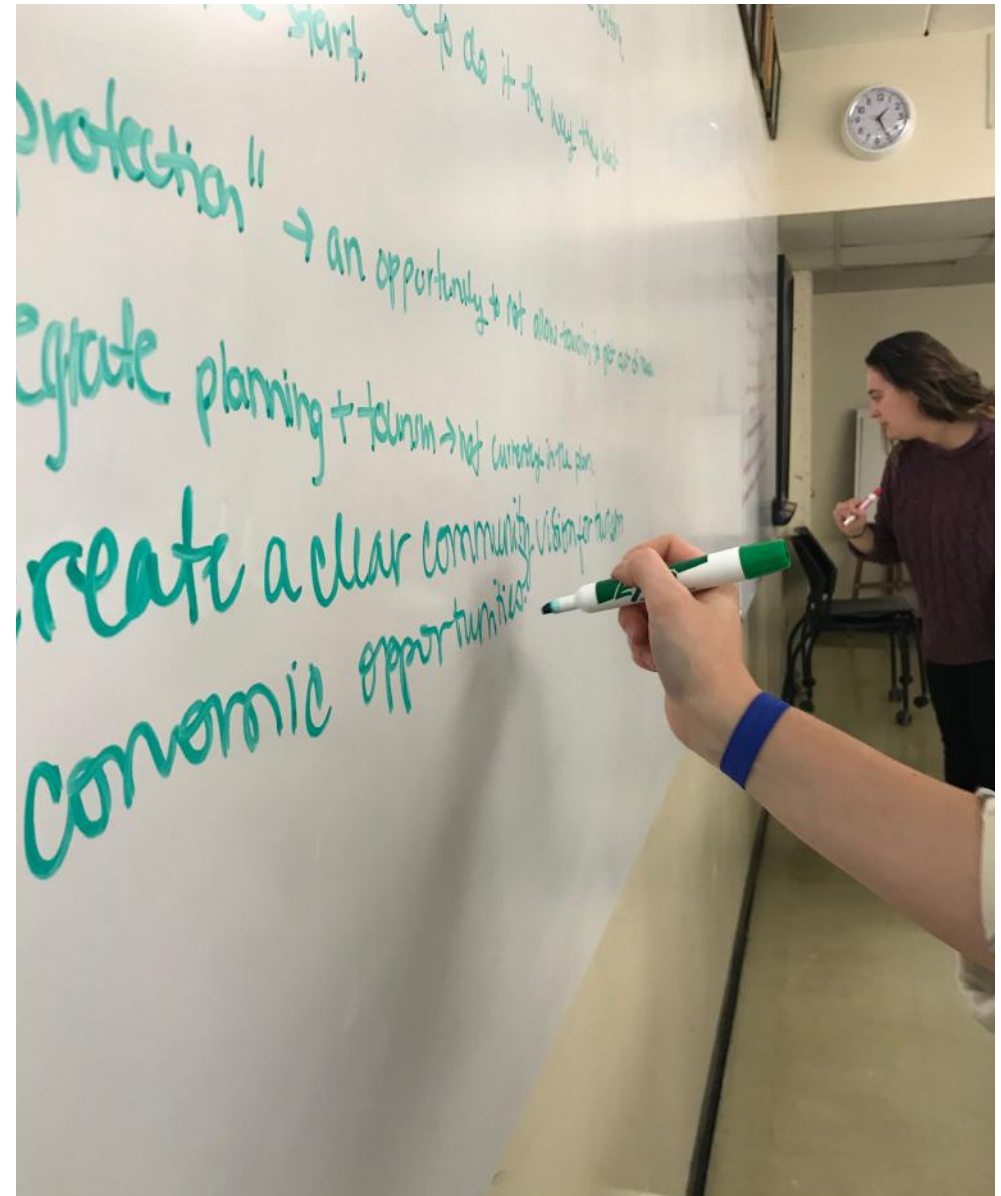 start.
to do it the way they want
protection" → an opportunity to not allow tourism to get out of hand
egrate planning + tourism → not currently in the plan.
create a clear community vision for tourism
conomic opportunities.